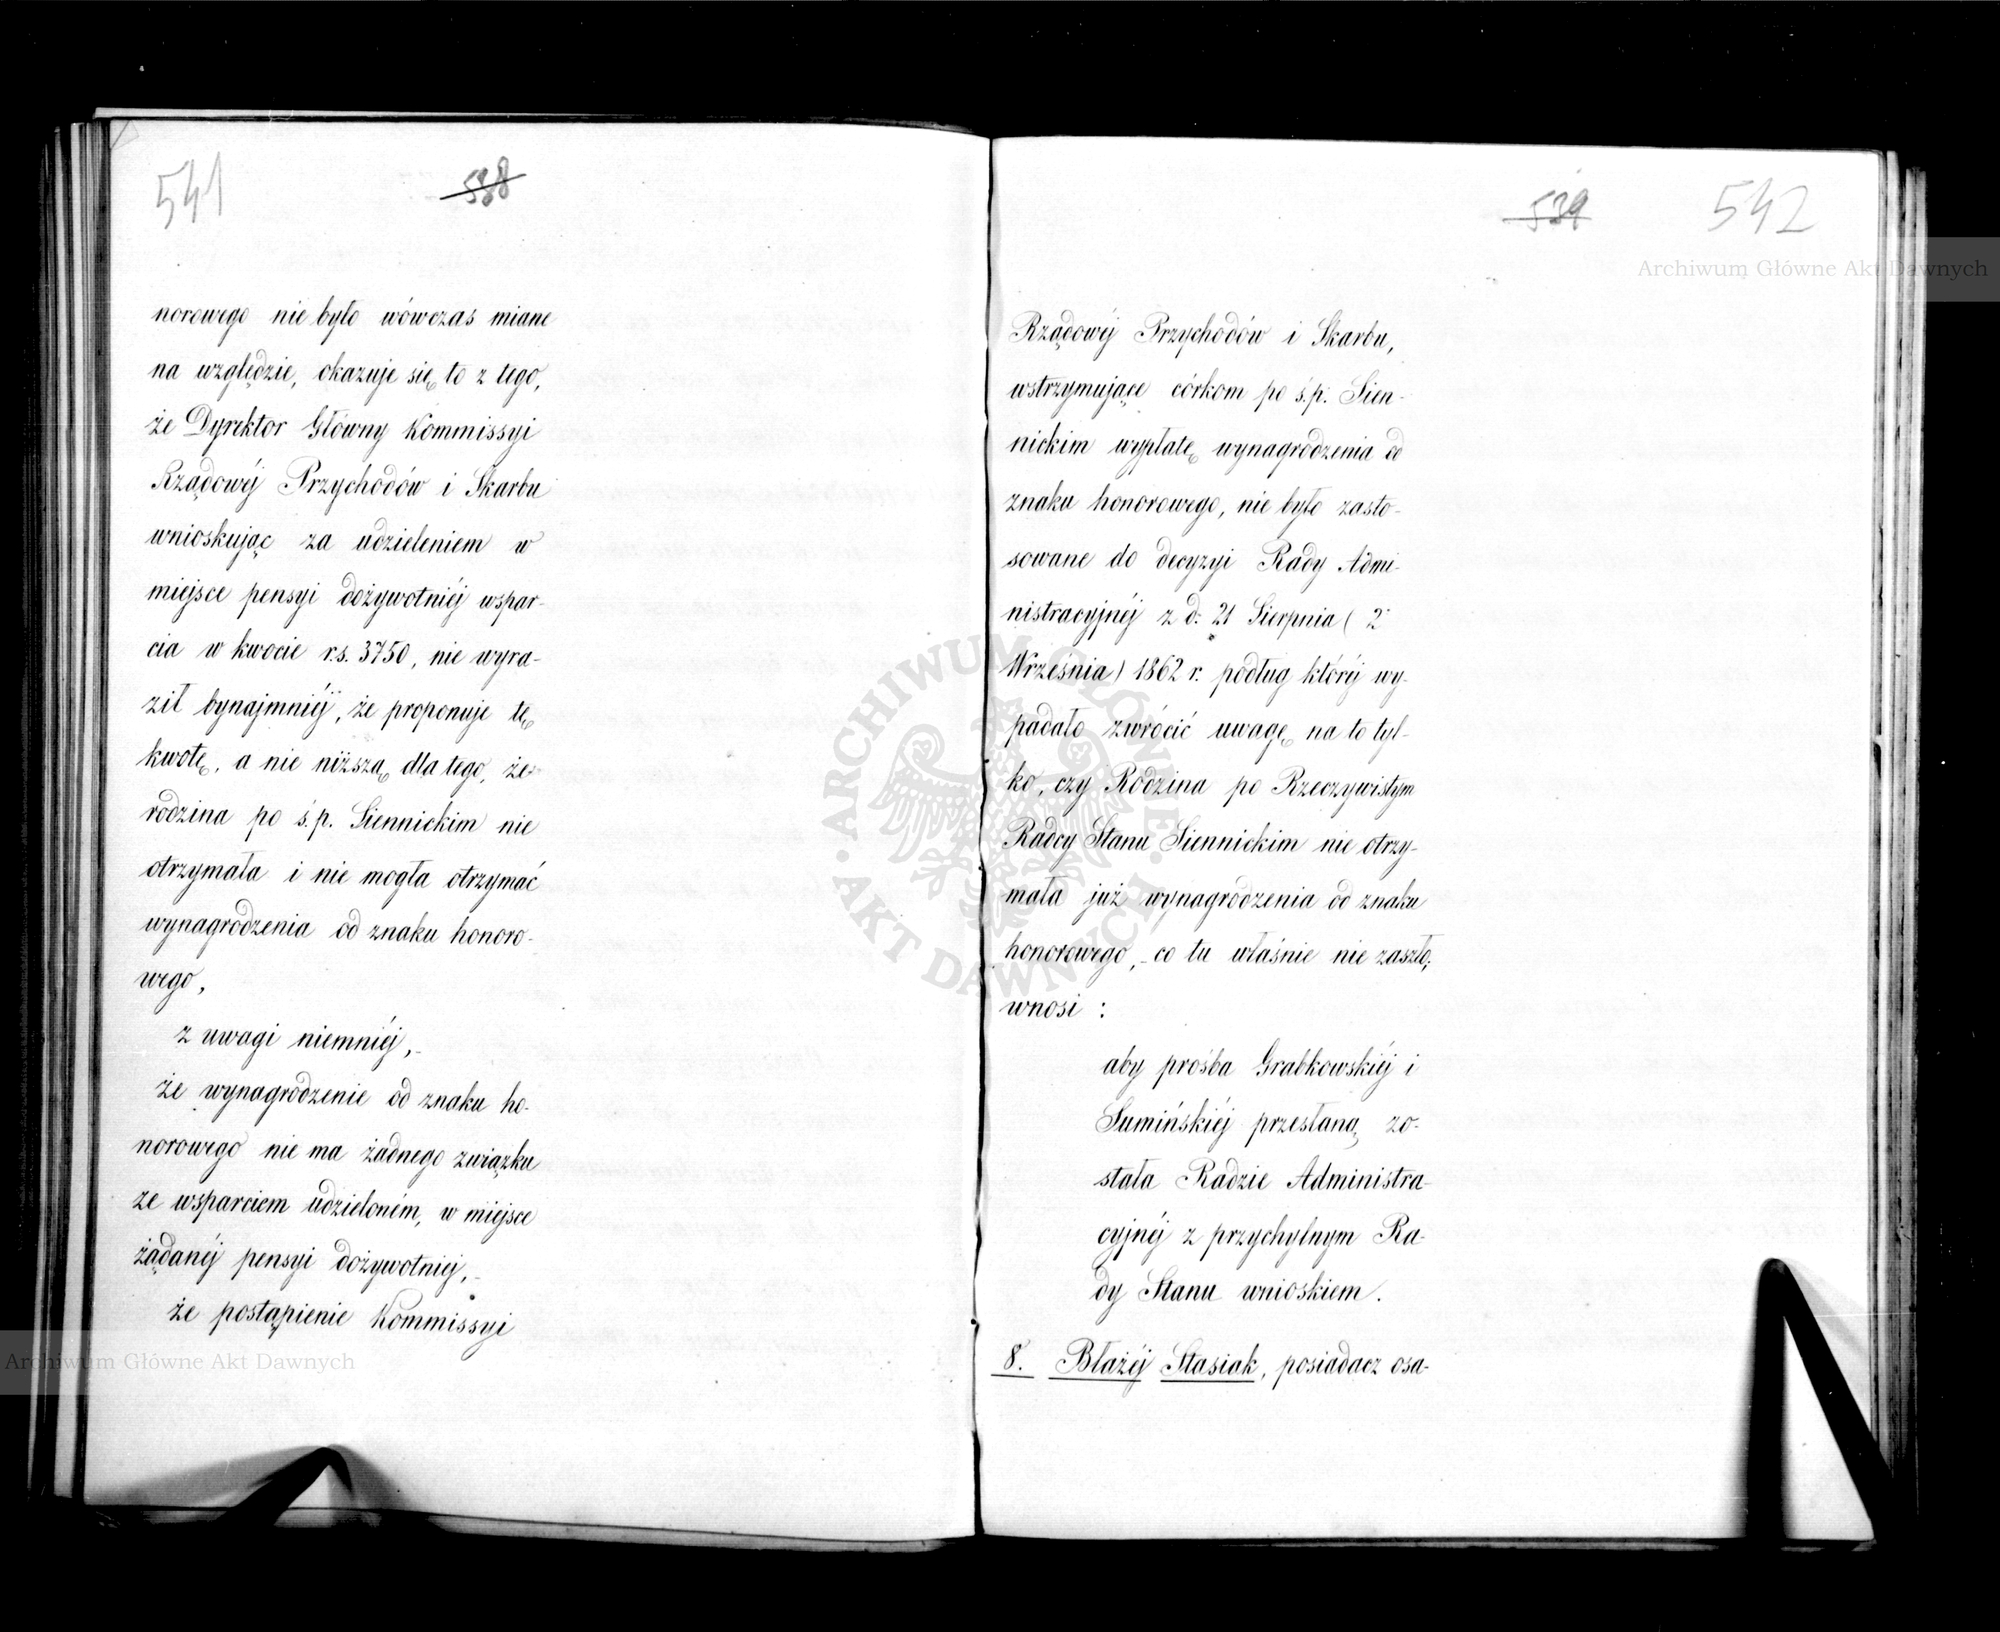 541
538
norowego nie było wówczas miane
na względzie, okazuje się to z tego,
że Dyrektor Główny Kommissyi
Rządowéj Przychodów i Skarbu
wnioskując za udzieleniem w
miejsce pensyi dożywotniéj wspar-
cia w kwocie r.s. 3750, nie wyra-
ził bynajmniéj, że proponuje tę
kwotę, a nie niższą, dla tego, że
rodzina po ś.p. Siennickim nie
otrzymała i nie mogła otrzymać
wynagrodzenia od znaku honoro-
wego,
z uwagi niemniéj,
że wynagrodzenie od znaku ho-
norowego nie ma żadnego związku
ze wsparciem udzieloném, w miejsce
żądanéj pensyi dożywotniej,
że postąpienie Kommissyi
539
542
Rządowéj Przychodów i Skarbu,
wstrzymujące córkom po ś.p. Sien-
nickim wypłatę wynagrodzenia od
znaku honorowego, nie było zasto-
sowane do decyzyi Rady Admi-
nistracyjnéj z d. 21 Sierpnia ( 2
Września ) 1862 r. podług któréj wy-
padało zwrócić uwagę na to tyl-
ko, czy Rodzina po Rzeczywistym
Radcy Stanu Siennickim nie otrzy-
mała już wynagrodzenia od znaku
honorowego, - co tu właśnie nie zaszło;
wnosi :
aby prośba Grabkowskiéj i
Sumińskiéj przesłaną zo-
stała Radzie Administra-
cyjnéj z przychylnym Ra-
dy Stanu wnioskiem.
8. Błażéj Stasiak, posiadacz osa-
Archiwum Główne Akt Dawnych
Archiwum Główne Akt Dawnych
ARCHIWUM GŁÓWNE
AKT DAWNYCH